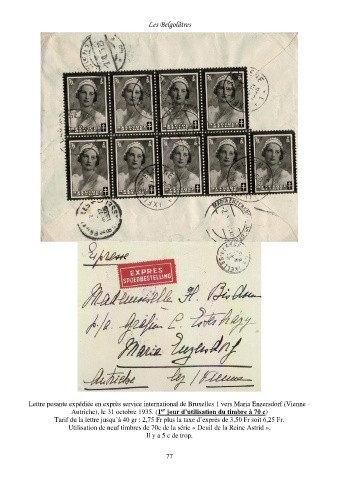 Les Belgolâtres
Expresse
EXPRÈS
SPOEDBESTELLING
Mademoiselle H.
p/a. Gräfin C. Esterházy
Maria Enzersdorf
Autriche bez / Vienne
Lettre pesante expédiée en exprès service international de Bruxelles 1 vers Maria Enzersdorf (Vienne -
Autriche), le 31 octobre 1935. (1er jour d'utilisation du timbre à 70 c)
Tarif du la lettre jusqu'à 40 gr : 2,75 Fr plus la taxe d'exprès de 3,50 Fr soit 6,25 Fr.
Utilisation de neuf timbres de 70c de la série « Deuil de la Reine Astrid ».
Il y a 5 c de trop.
77